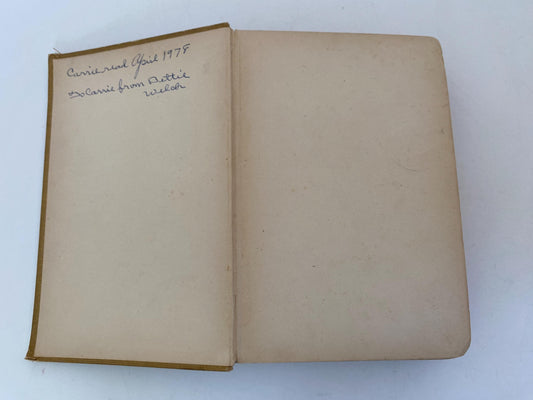 Carrie read April 1978
To Carrie from Dettie
Welch